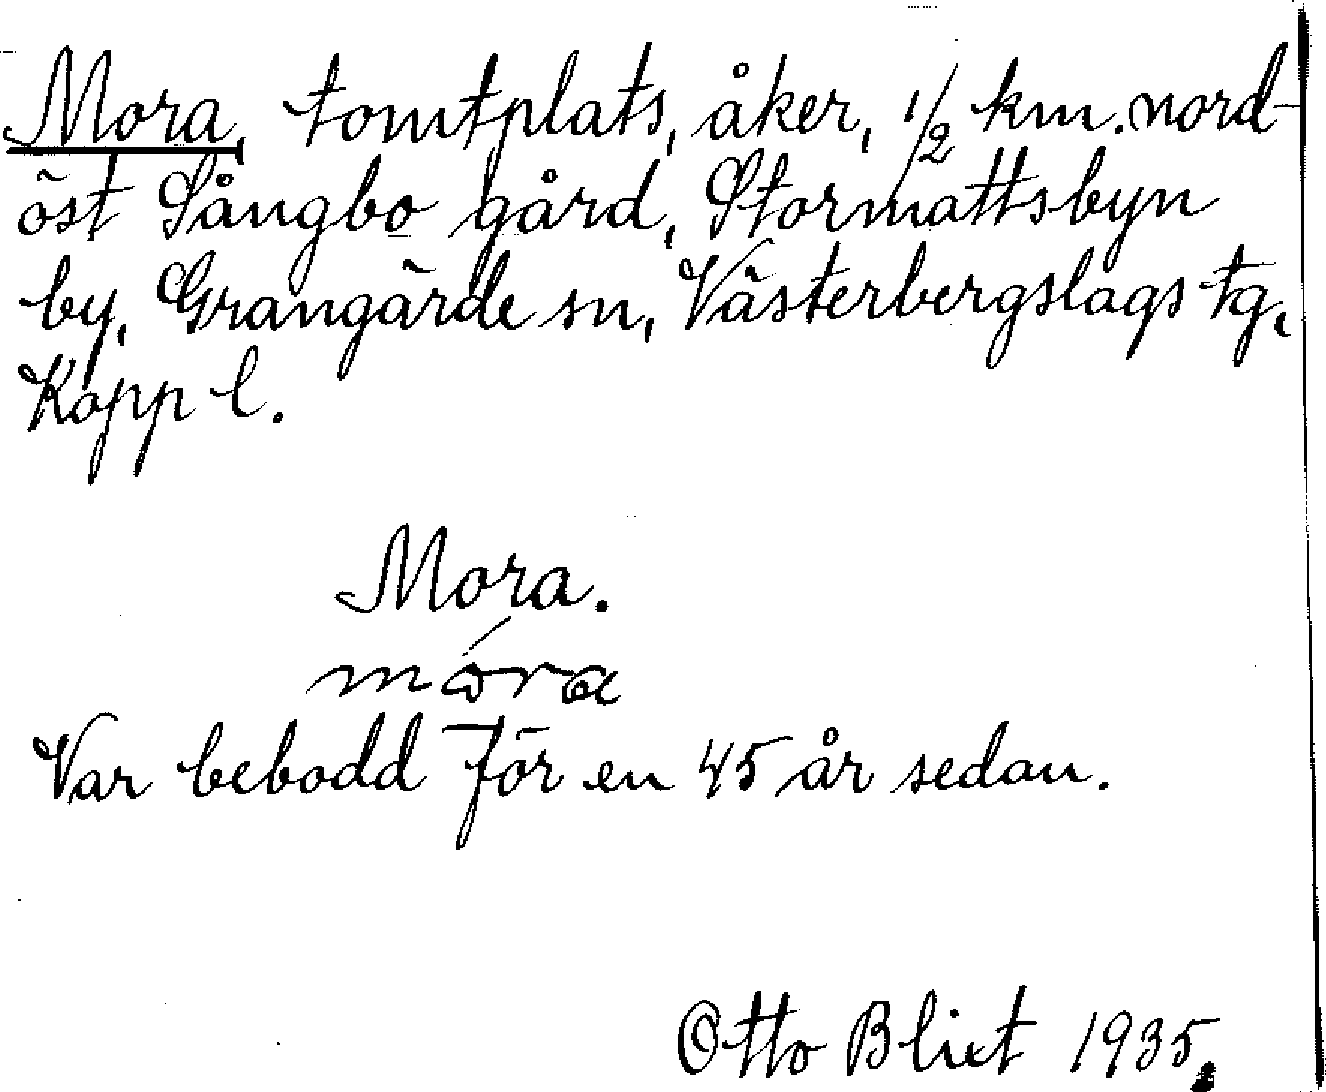 Mora, tomtplats, åker, 1/2 km. nord-
öst Sångbo gård, Stormattsbyn
by, Grangärde sn, Västerbergslags tg,
Kopp l.
Mora.
móra
Var bebodd för en 45 år sedan.
Otto Blixt 1935.